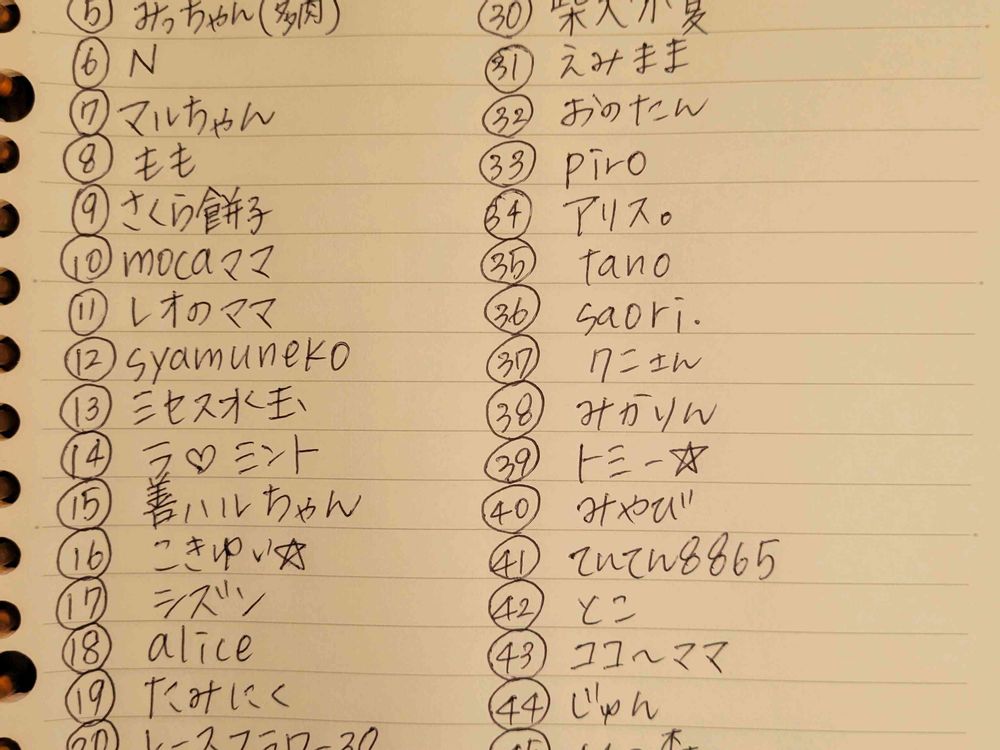 ⑤ みっちゃん(多肉)
⑥ N
⑦ マルちゃん
⑧ もも
⑨ さくら餅子
⑩ mocaママ
⑪ レオのママ
⑫ syamuneko
⑬ ミセス水玉
⑭ ラ♡ミント
⑮ 善ハルちゃん
⑯ こきゆい☆
⑰ シズツン
⑱ alice
⑲ たみにく
⑳ レースフラワー30
㉚ 柴犬小夏
㉛ えみまま
㉜ おのたん
㉝ piro
㉞ アリス。
㉟ tano
㊱ saori.
㊲ クニさん
㊳ みかりん
㊴ トミー☆
㊵ みやび
㊶ てんてん8865
㊷ とこ
㊸ ココ〜ママ
㊹ じゅん
㊺